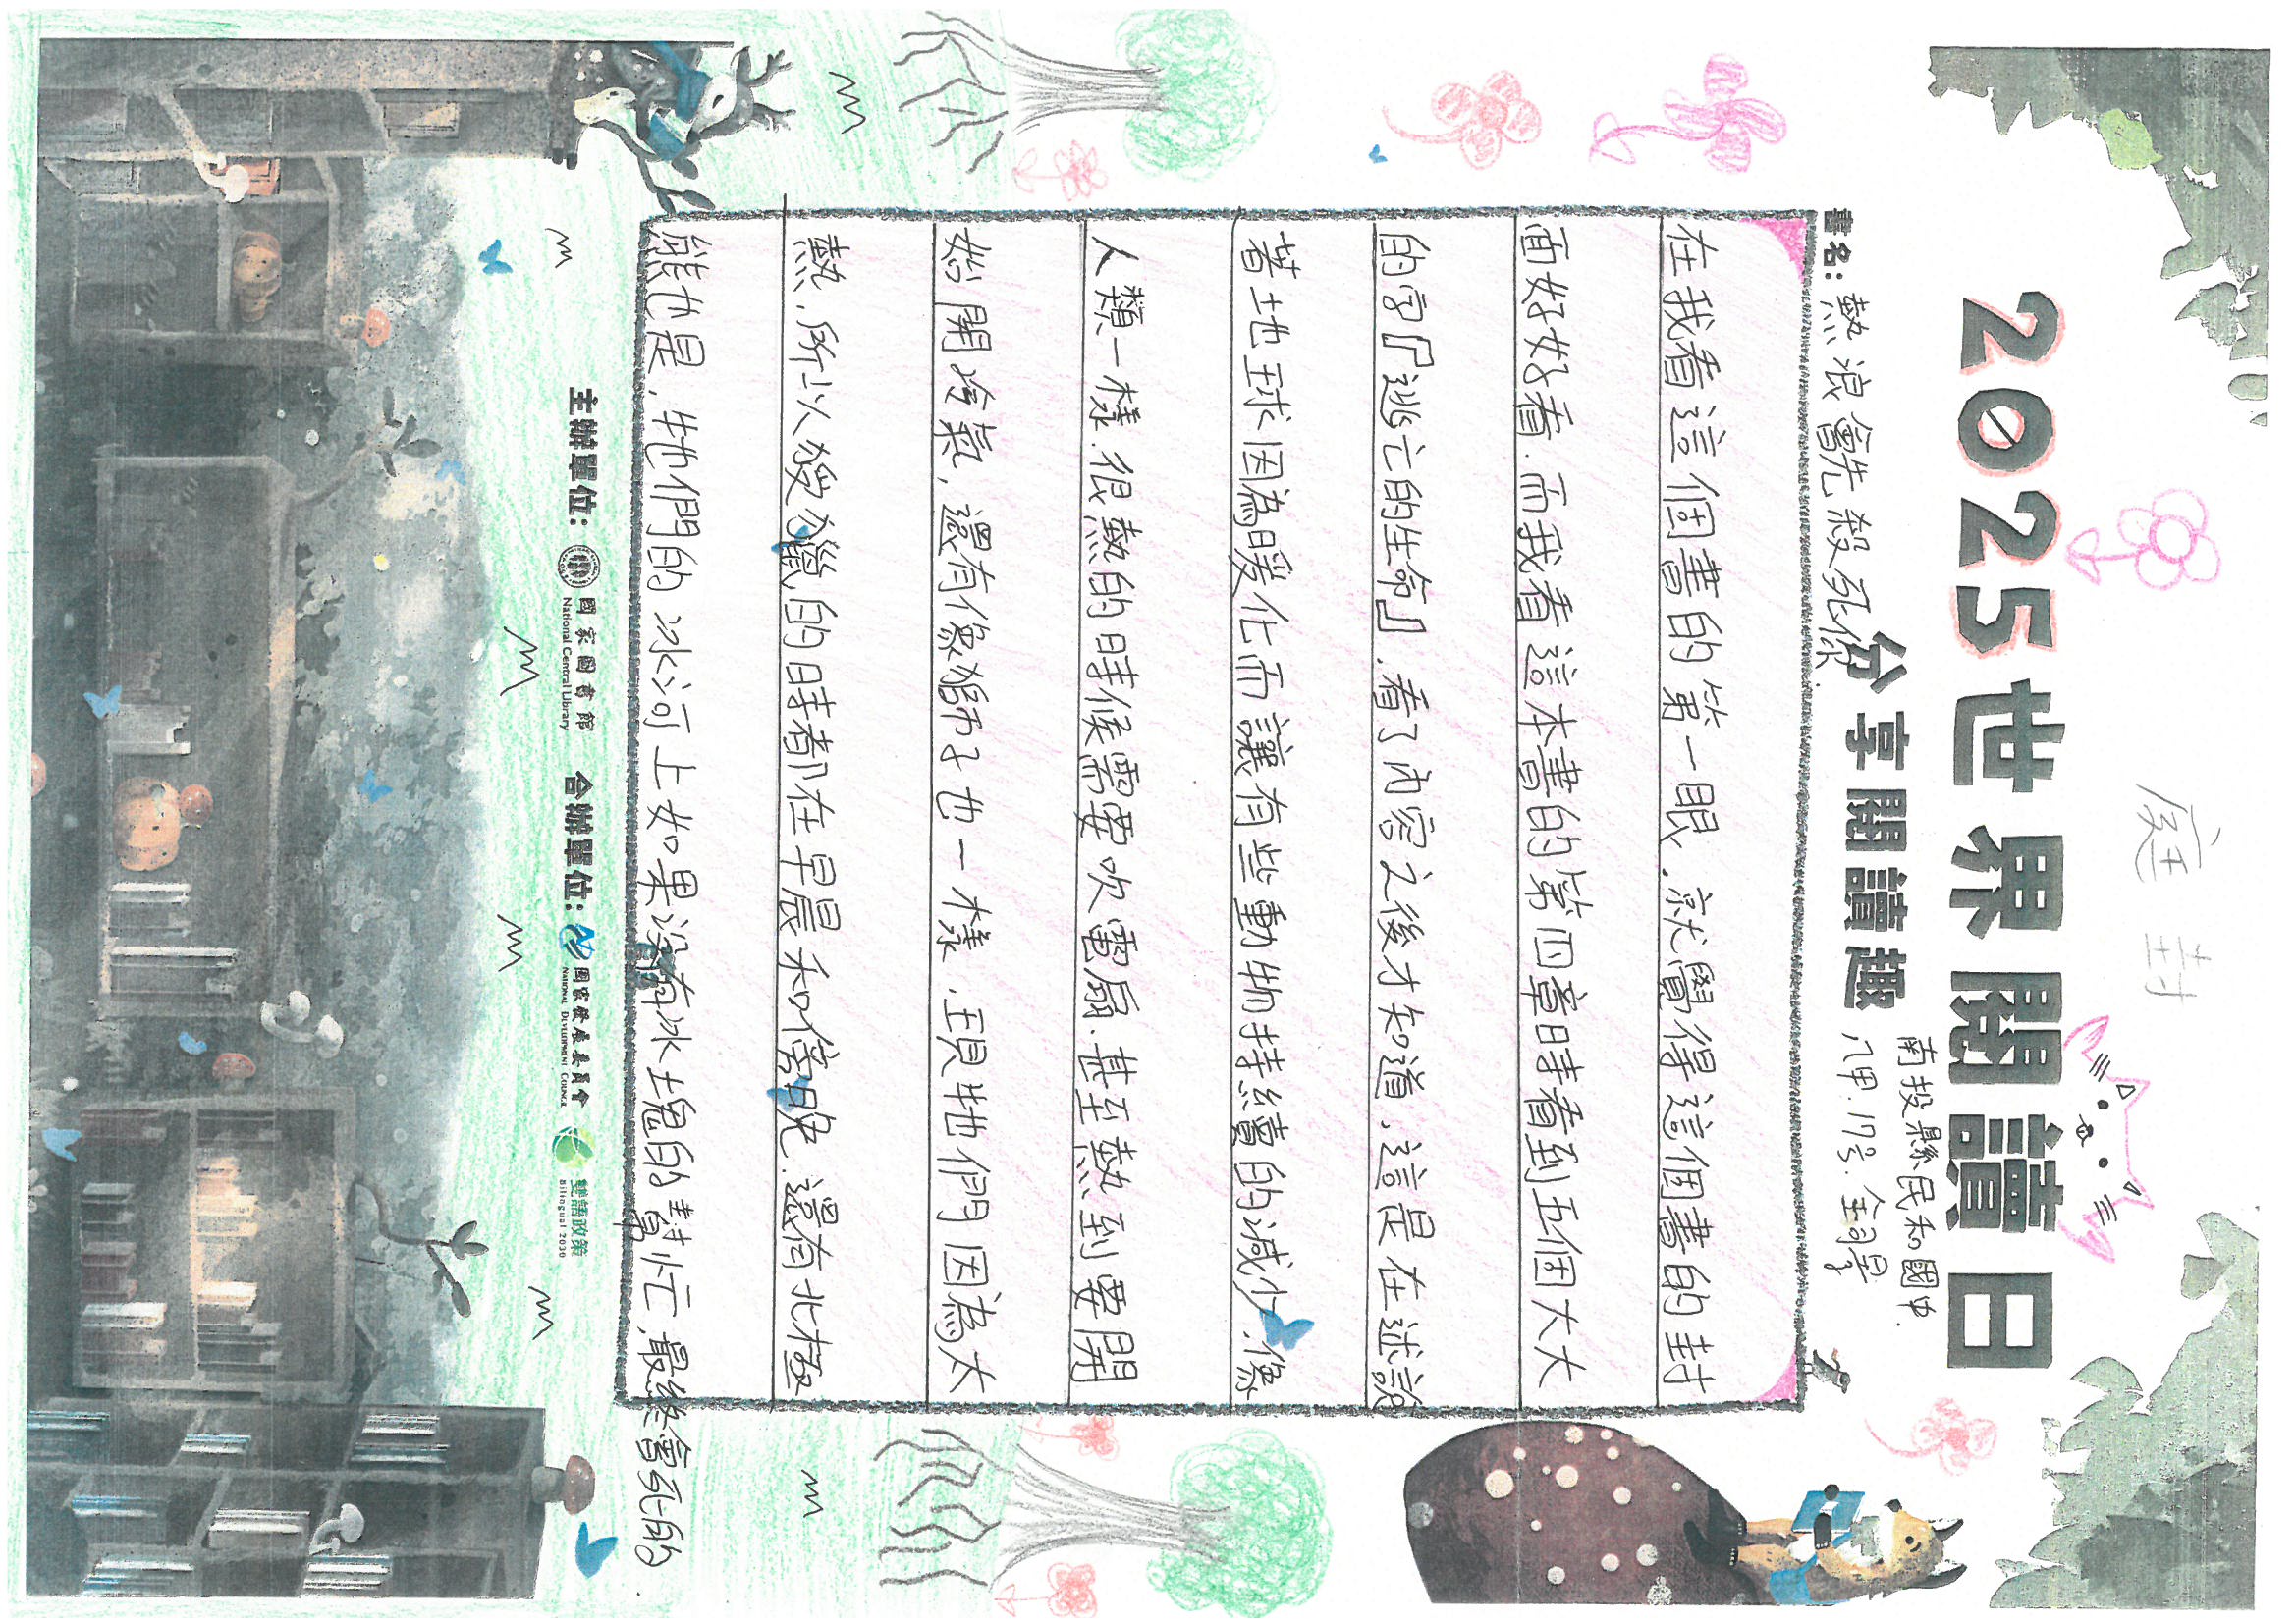 庭 封
2025世界閱讀日
分享閱讀趣
南投縣民和國中.
八甲.17号.
書名：熱浪會先殺死你
在我看這個書的第一眼.就覺得這個書的封
面好好看.而我看這本書的第四章時看到五個大大
的字『逃亡的生命』.看了內容之後才知道.這是在述說
著地球因為暖化而讓有些動物持續的減少.像
人類一樣.很熱的時候需要吹電扇.甚至熱到要開
始開冷氣,還有像獅子也一樣.王貝牠們因為太
熱.所以狩獵的時都在早晨和傍晚.還有北極
熊也是.牠們的冰河上如果沒有冰塊的幫忙.最終會死的
主辦單位：國家圖書館 National Central Library 合辦單位：國家發展委員會 National Development Council 雙語政策 Bilingual 2030